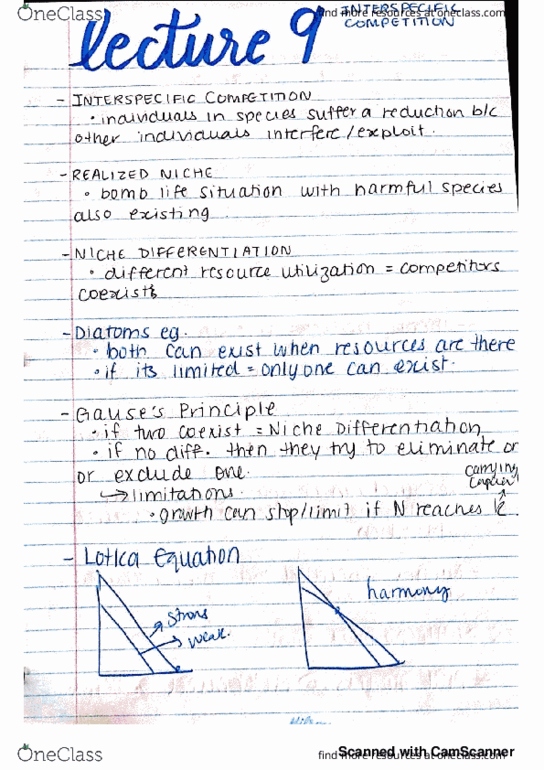 OneClass
find more resources at oneclass.com
INTERSPECIFIC
COMPETITION
lecture 9
- INTERSPECIFIC COMPETITION
• individuals in species suffer a reduction b/c
other individuals interfere/exploit.
- REALIZED NICHE
• bomb life situation with harmful species
also existing
- NICHE DIFFERENTIATION
• different resource utilization = competitors
coexists
- Diatoms eg.
• both can exist when resources are there
• if its limited = only one can exist.
- Gause's Principle
• if two coexist = Niche Differentiation
• if no diff. then they try to eliminate or
or exclude one.
carrying
↳ limitations.
• growth can stop/limit if N reaches K.
- Lotka Equation
strong
weak.
harmony
OneClass
find more resources at oneclass.com
Scanned with CamScanner